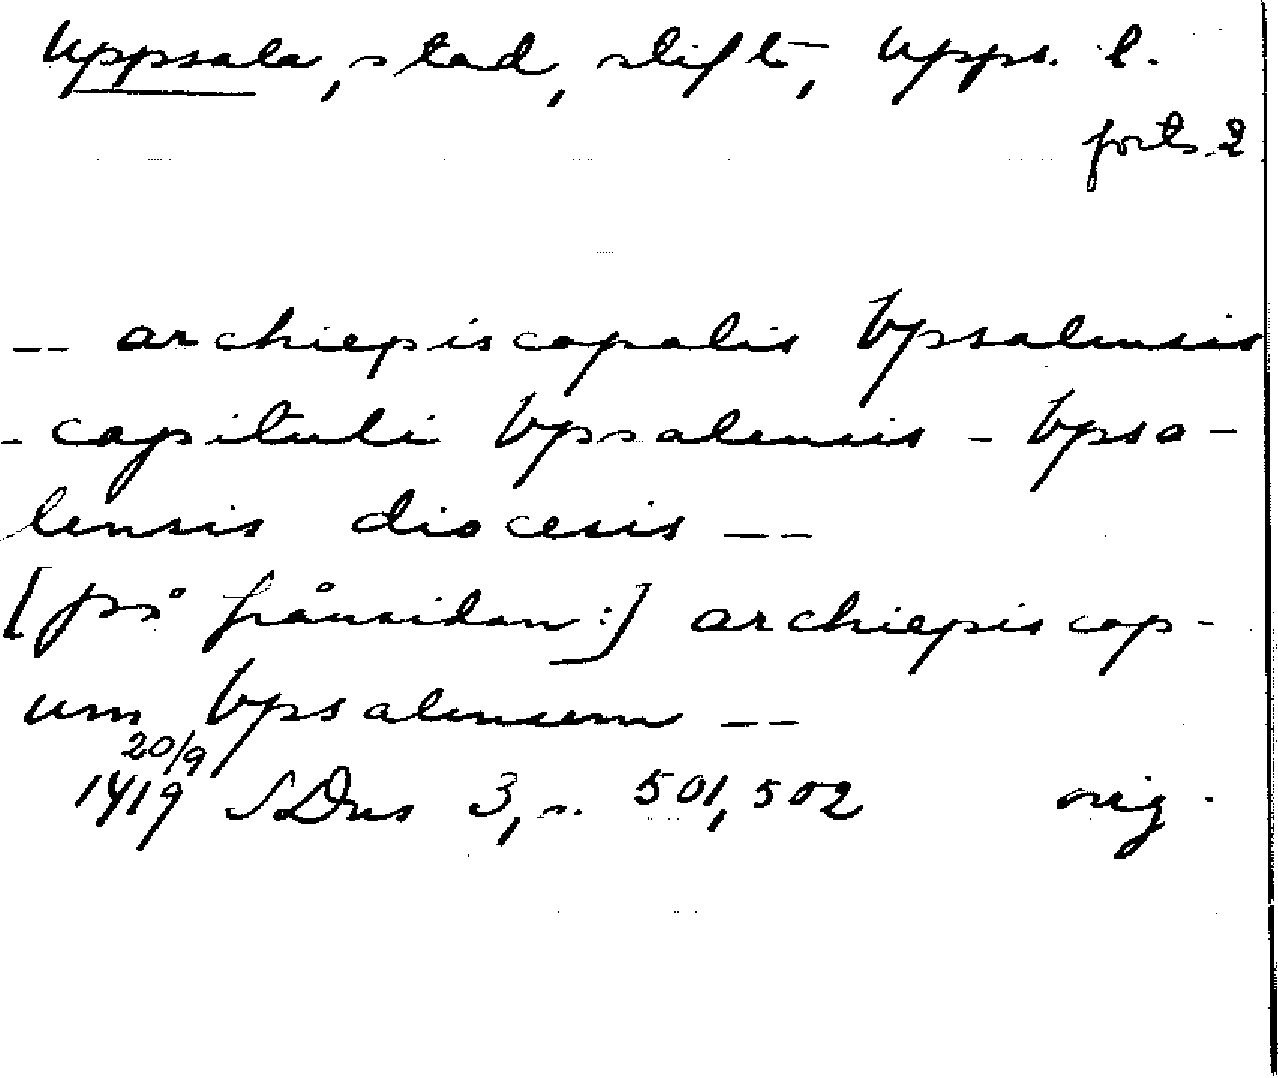 Uppsala, stad, stift, Upps. l.
forts. 2
-- archiepiscopalis Vpsalensis
- capituli Vpsalensis - Vpsa-
lensis diocesis --
[på frånsidan:] archiepiscop-
um Vpsalensem --
20/9
1419 SDns 3, s. 501, 502 orig.